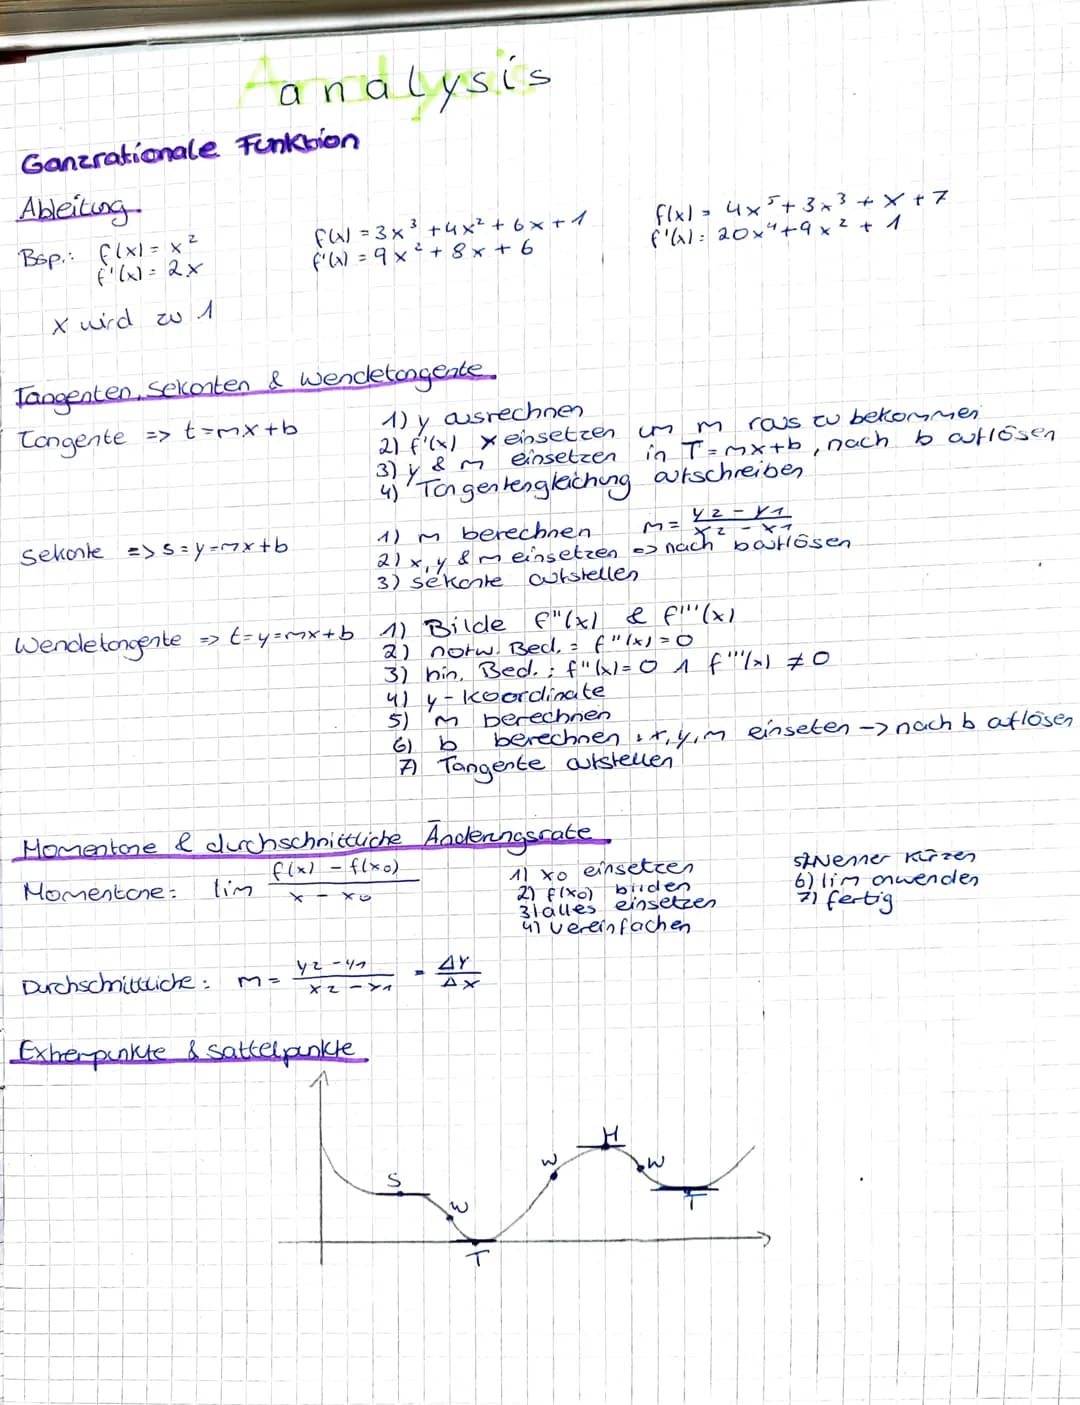 Analysis
Ganzrationale Funktion
Ableitung
Bsp.: f(x) = x²
f'(x) = 2x
f(x) = 3x³ + 4x² + 6x + 1
f'(x) = 9x² + 8x + 6
f(x) = 4x⁵ + 3x³ + x + 7
f'(x) = 20x⁴ + 9x² + 1
x wird zu 1
Tangenten, Sekanten & Wendetangente
Tangente => t=mx+b
1) y ausrechnen
2) f'(x) x einsetzen um m raus zu bekommen
3) y & m einsetzen in T=mx+b, nach b auflösen
4) Tangentengleichung aufschreiben
Sekante => s=y=mx+b
1) m berechnen m = y2 - y1 / x2 - x1
2) x,y & m einsetzen => nach b auflösen
3) Sekante aufstellen
Wendetangente => t=y=mx+b
1) Bilde f''(x) & f'''(x)
2) notw. Bed. = f''(x) = 0
3) hin. Bed.: f''(x) = 0 ∧ f'''(x) ≠ 0
4) y-Koordinate
5) m berechnen
6) b berechnen, x,y,m einseten -> nach b auflösen
7) Tangente aufstellen
Momentane & durchschnittliche Änderungsrate
Momentane: lim f(x) - f(x0) / x - x0
1) x0 einsetzen
2) f(x0) bilden
3) alles einsetzen
4) vereinfachen
5) Nenner kürzen
6) lim anwenden
7) fertig
Durchschnittliche: m = y2 - y1 / x2 - x1 = Δy / Δx
Extrempunkte & Sattelpunkte
H
W
W
S
W
T
T